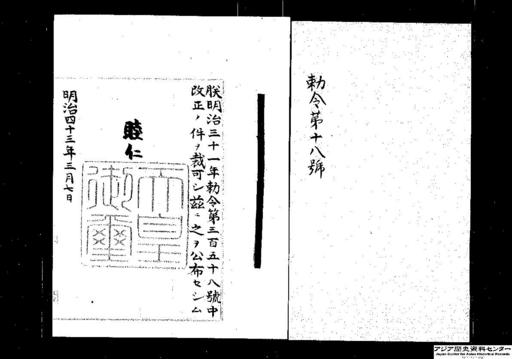 勅令第十八號
朕明治三十一年勅令第三百五十八號中
改正ノ件ヲ裁可シ茲ニ之ヲ公布セシム
睦仁
天皇
御璽
明治四十三年三月七日
アジア歴史資料センター
Japan Center for Asian Historical Records